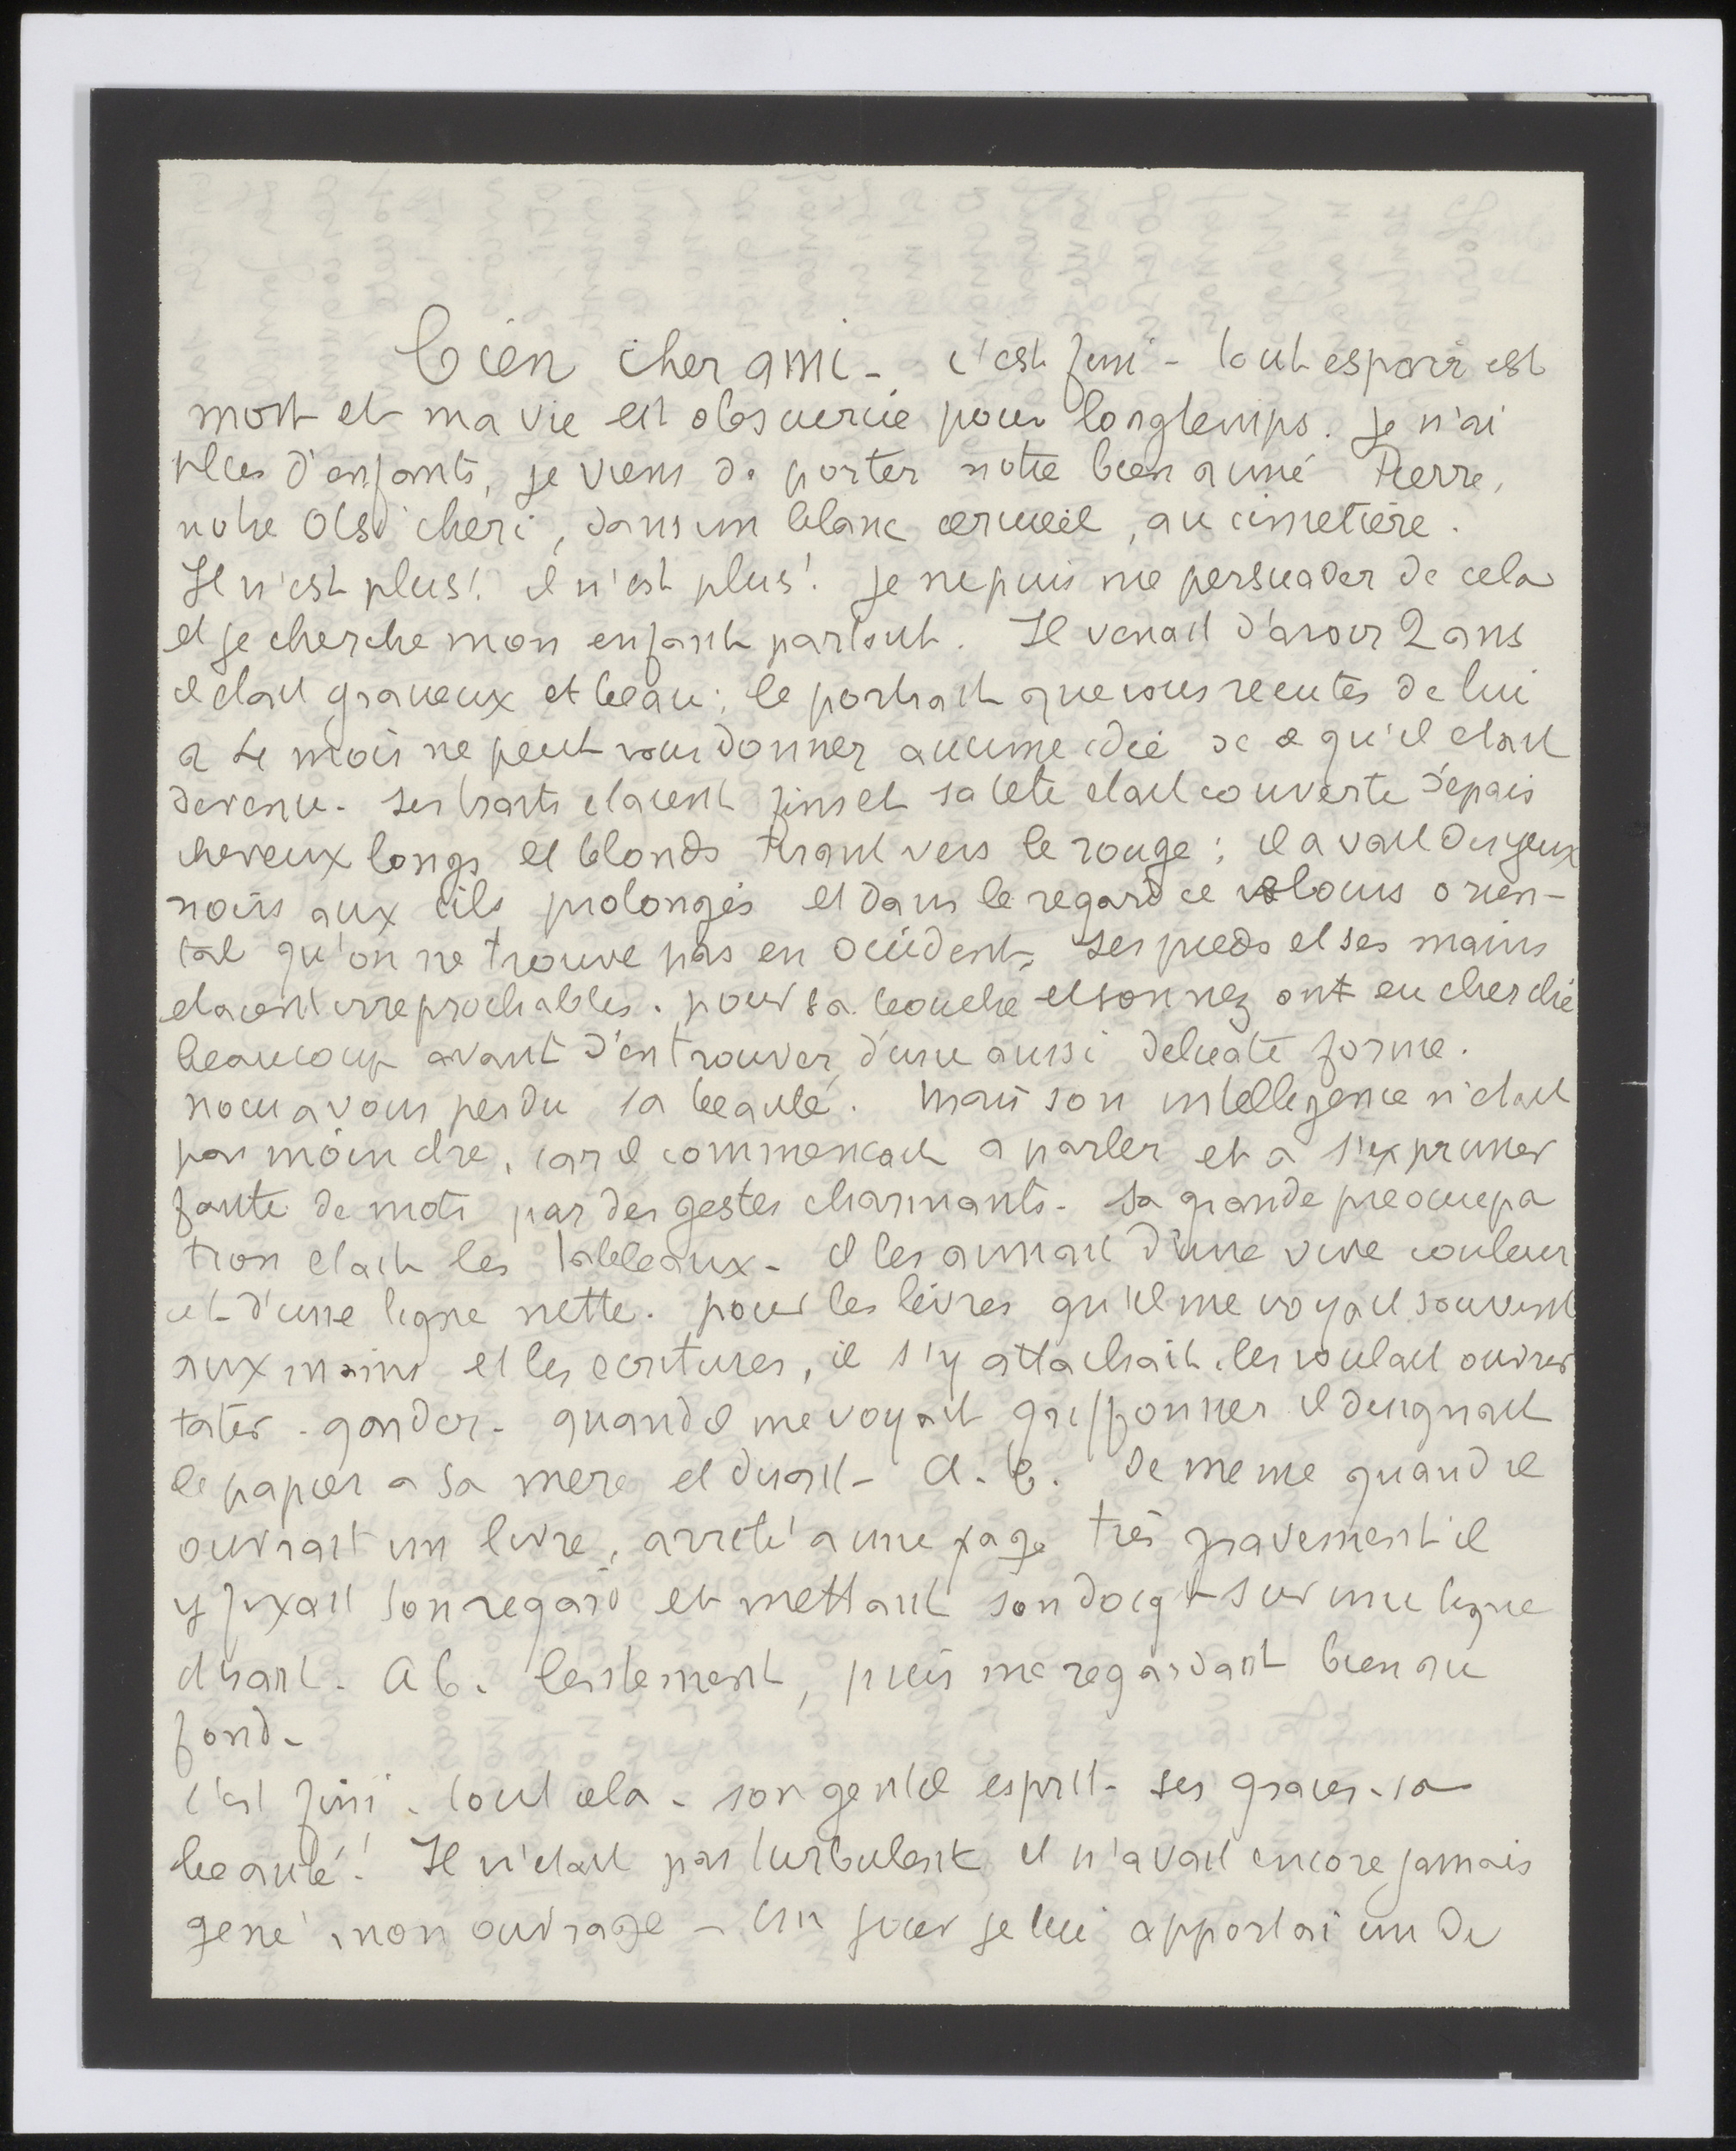 bien cher ami - c'est fini - tout espoir est
mort et ma vie est obscurcie pour longtemps. je n'ai
plus d'enfants, je viens de porter notre bien aimé Pierre,
notre cheri, dans un blanc cercueil, au cimetière.
Il n'est plus! il n'est plus! je ne puis me persuader de cela
et je cherche mon enfant partout. Il venait d'avoir 2 ans
il etait gracieux et beau: le portrait que vous recutes de lui
a mois ne peut vous donner aucune idée de ce qu'il etait
devenu. ses traits etaient fins et sa tete etait couverte d'epais
cheveux longs et blonds tirant vers le rouge; il avait des yeux
noirs aux cils prolongés et dans le regard ce velours orien-
tal qu'on ne trouve pas en occident, ses pieds et ses mains
etaient irreprochables. pour sa bouche et son nez ont eu cherché
beaucoup avant d'en trouver d'une aussi delicate forme.
nous avons perdu sa beauté. mais son intelligence n'etait
pas moindre, car il commencait a parler et a s'exprimer
faute de mots par des gestes charmants. sa grande preocupa
tion etait les tableaux - il les aimait d'une vive couleur
et d'une ligne nette. pour les livres qu'il me voyait souvent
aux mains et les ecritures, il s'y attachait. les voulait ouvrir
tater - garder - quand il me voyait griffonner il designait
le papier a sa mere et disait - a. b. de meme quand il
ouvrait un livre, arreté a une page très gravement il
y fixait son regard et mettant son doigt sur une ligne
disant - a b. lentement, puis me regardant bien au
fond -
c'est fini - tout cela - son gentil esprit - ses graces - sa
beauté! Il n'etait pas turbulent et n'avait encore jamais
gené mon ouvrage - un jour je lui apportai un de